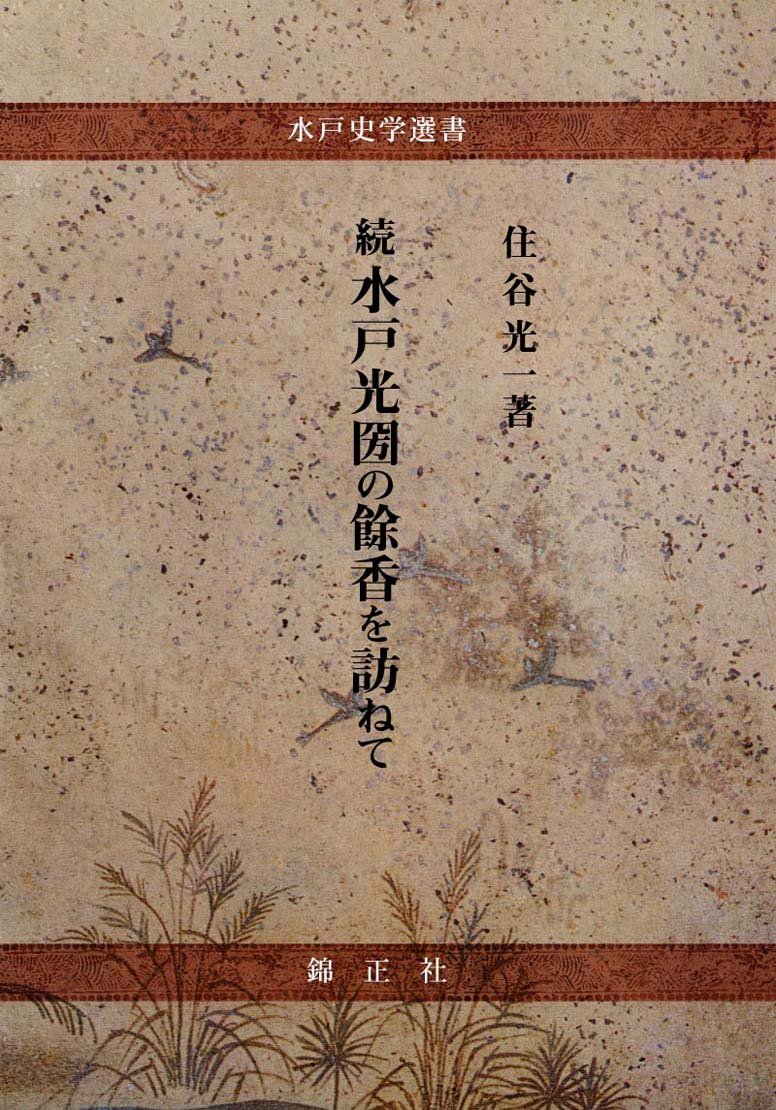 水戸史学選書
住谷光一著
続 水戸光圀の餘香を訪ねて
錦正社